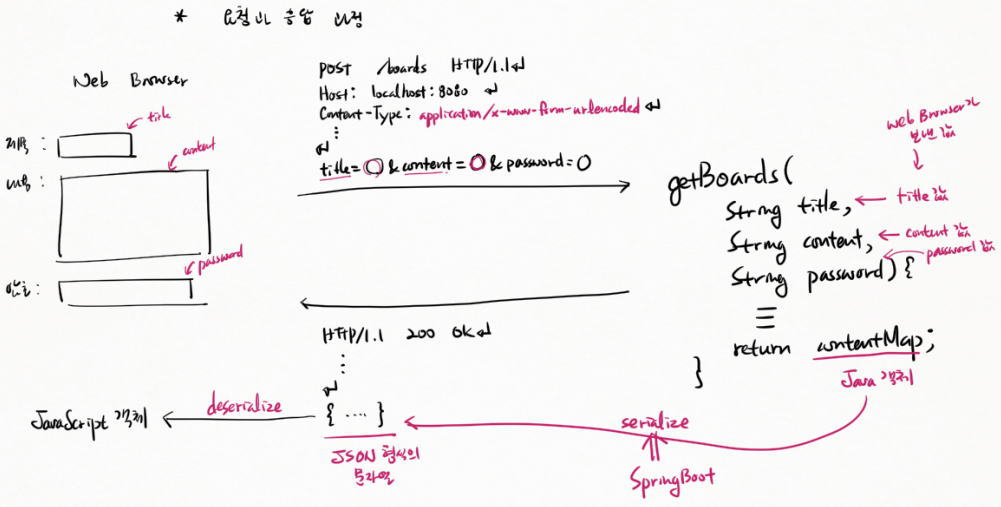 * 요청과 응답 과정
Web Browser
제목 :
title
내용 :
content
암호 :
password
POST /boards HTTP/1.1↵
Host: localhost:8080 ↵
Content-Type: application/x-www-form-urlencoded ↵
⋮
↵
title=○&content=○&password=○
web Browser가
보낸 값
getBoards(
String title, ← title 값
String content, ← content 값
String password) { ← password 값
≡
return contentMap;
}
Java 객체
HTTP/1.1 200 OK↵
⋮
↵
{ .... }
JSON 형식의
문자열
deserialize
JavaScript 객체
serialize
⇑
SpringBoot